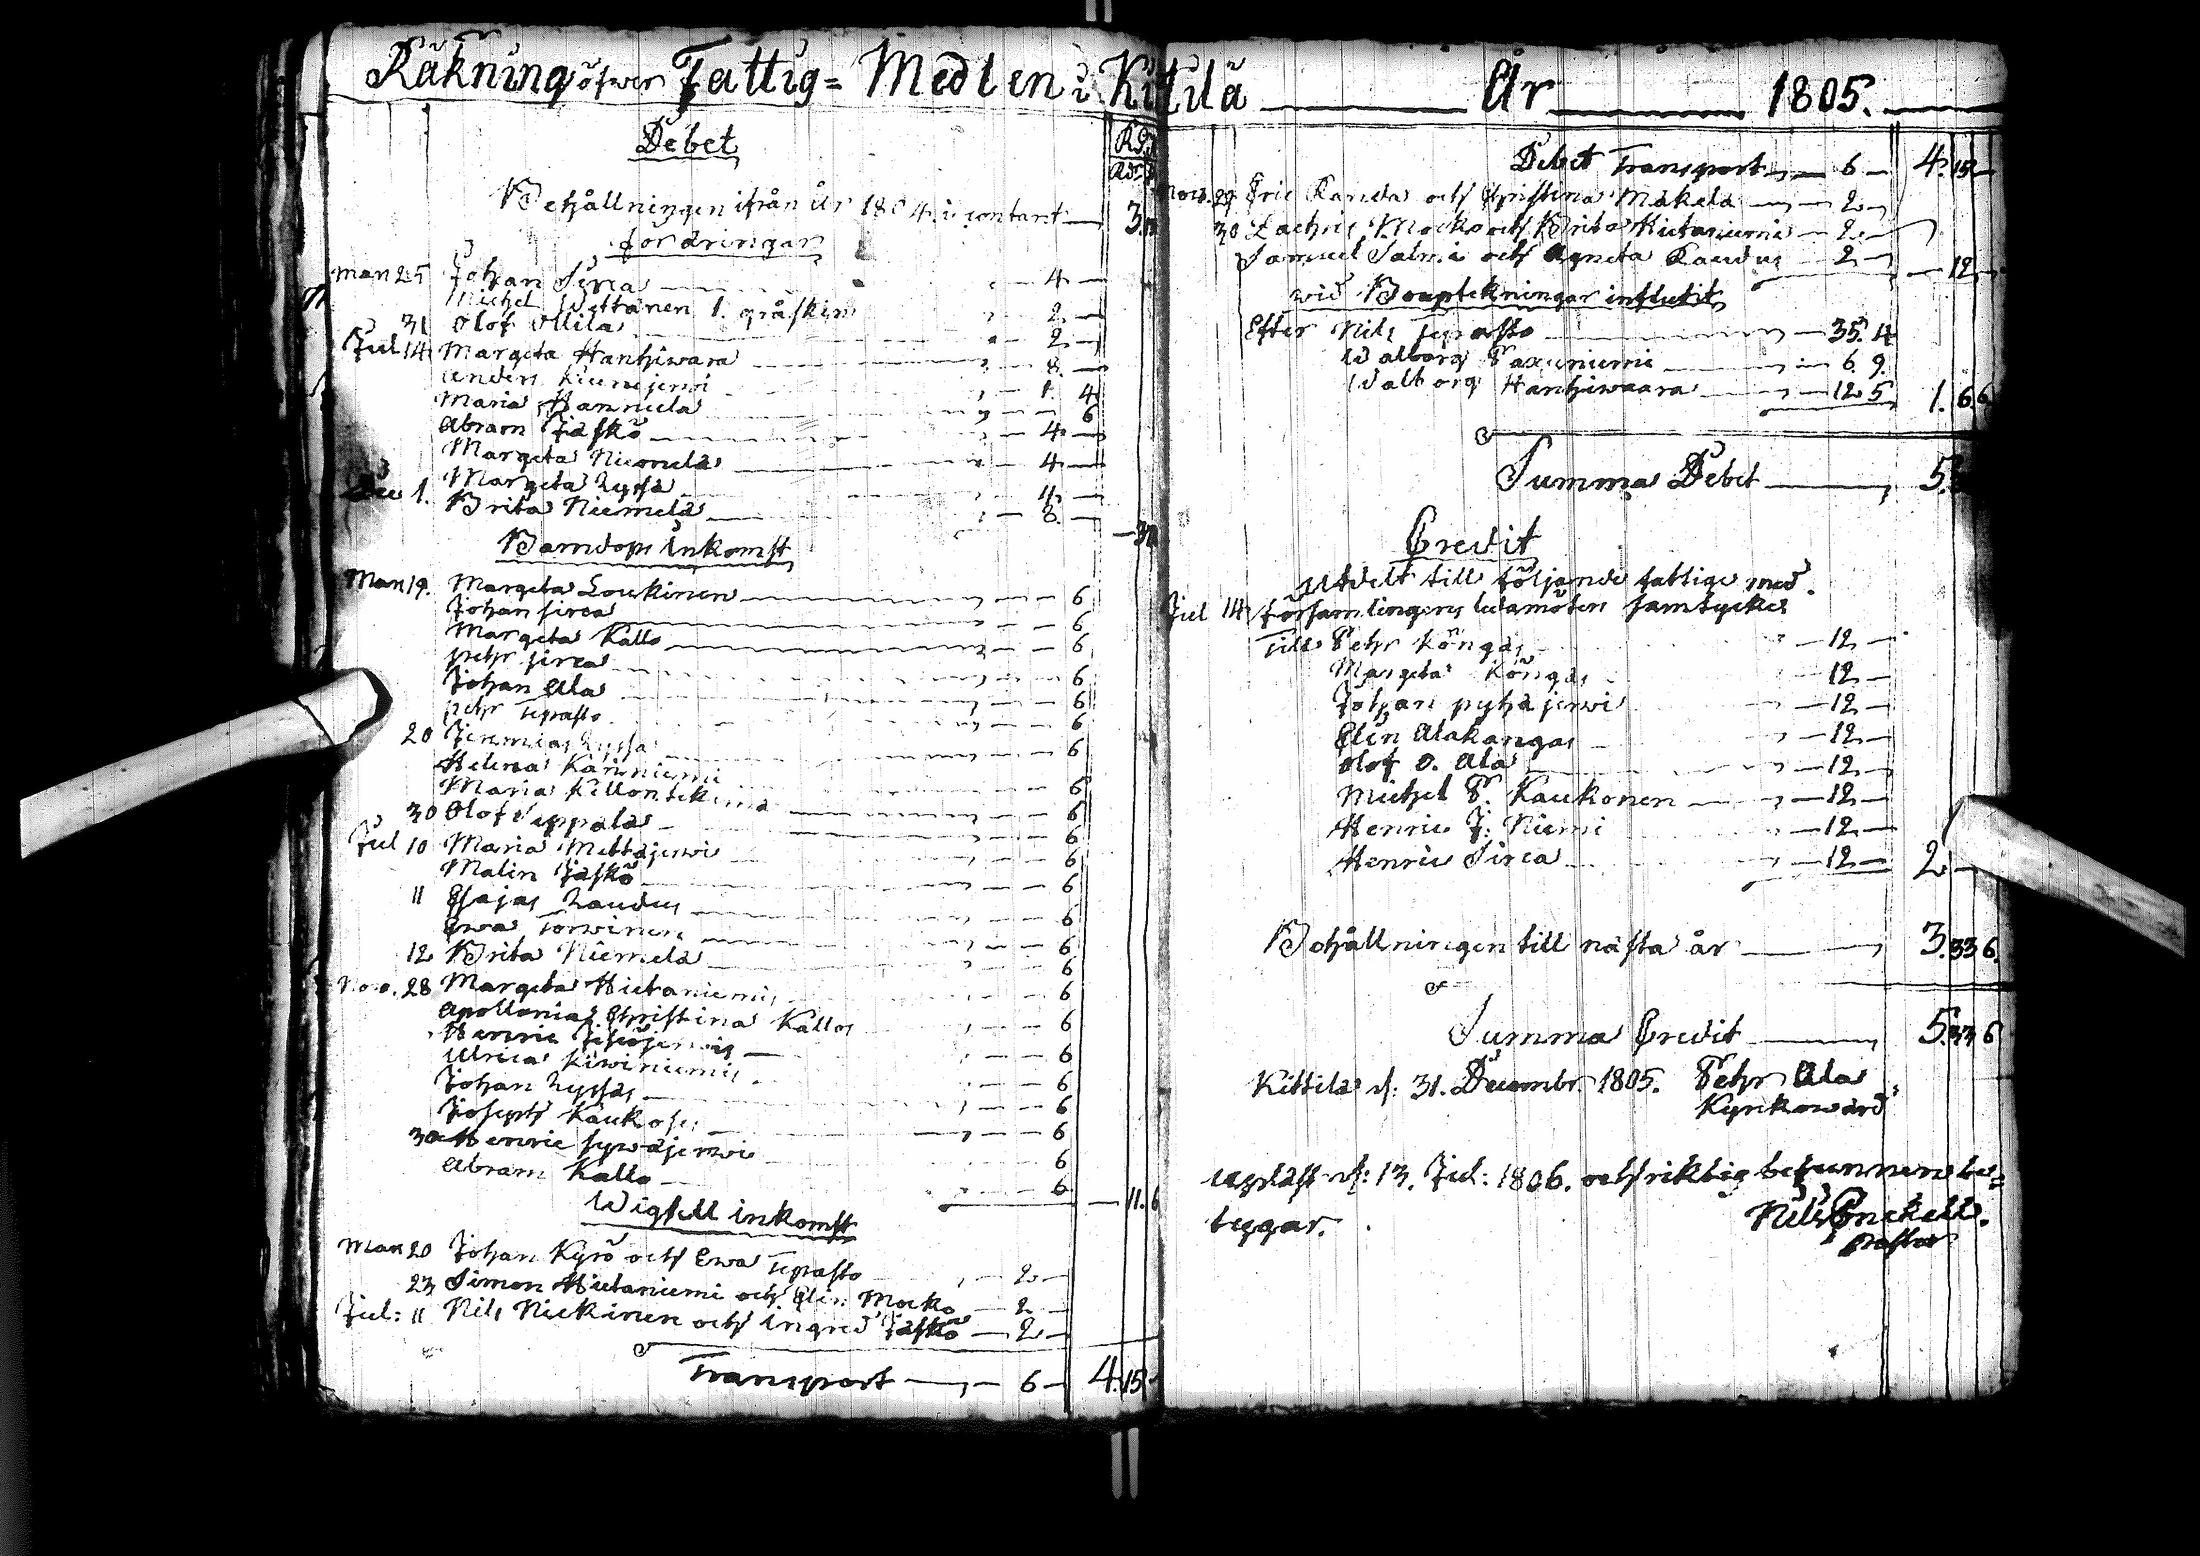 Räkning öfwer Fattig= Medlen i Kittilä År 1805.
Debet
Behållningen ifrån År 1804 i contant 3.
fordringar
Mart 25 Johan Sirca 4 —
Michel Wettanen 1. gråskin 2 —
31 Olof Ollila 2 —
Jul 14 Margeta Hanhiwara 8 —
Anders 1. 4
Maria Hannula 6
Abram Jäskö 4 —
Margeta Niemelä 4 —
Margeta Zyssä 4 —
Dec 1. Brita Niemelä 8 —
Barndops inkomst
Mart 19. Margeta Loukinen 6
Johan Sirca 6
Margeta Kallo 6
Pehr Sirca 6
Johan Ala 6
Pehr Tepasto 6
20 Jeremias Zyssä 6
Helena Käriniemi 6
Maria Killontekinä 6
30 Olof Seppälä 6
Jul 10 Maria Mettäjerwi 6
Malin Jäskö 6
11 Esajas Laudus 6
Ewa Torwinen 6
12 Brita Niemelä 6
Nov. 28 Margeta Hietaniemi 6
Apollonia Christina Kallo 6
Henric 6
Ulrica Kiwiniemi 6
Johan Zyssä 6
Joseph Kauko 6
30 Henric Sywäjerwi 6
Abram Kallo 6 — 11. 6
Wigsell inkomst
Mart 20 Johan Kyrö och Ewa Tepasto 2 —
23 Simon Hietaniemi och Elin Mocko 2 —
Jul: 11 Nils Nickinen och Ingred Jäskö 2 —
Transport 6 — 4. 15 —
Debet Transport 6 — 4. 15 —
Nov. 29 Eric Randa och Christina Mäkelä 2 —
30 Zachris Mocko och Brita Hietaniemi 2 —
Samuel Salmi och Agneta Raudus 2 — — 12 —
wid Bouptekningar influtit
Efter Nils Tepasto 35. 4
Walborg Paxuniemi 6. 9.
Walborg Hanhiwaara 12 5 1. 6. 6
Summa Debet 5.
Credit
Utdelt till följande fattige med
Jul 14 församlingens ledamöters samtycke
Till Pehr Köngäs 12 —
Margeta Köngäs 12 —
Johan Pyhäjerwi 12 —
Elin Alakangas 12 —
Olof O. Ala 12 —
Michel P. Kaukonen 12 —
Henric J. Niemi 12 —
Henric Sirca 12 — 2 —
Behållningen till nästa år 3. 33 6.
Summa Credit 5. 33 6
Kittilä d: 31. Decembr 1805. Pehr Ala
Kyrkowärd
Upläst d: 13. Jul: 1806. och riktig befunnen be=
tygar. Nils Enckell.
Pastor